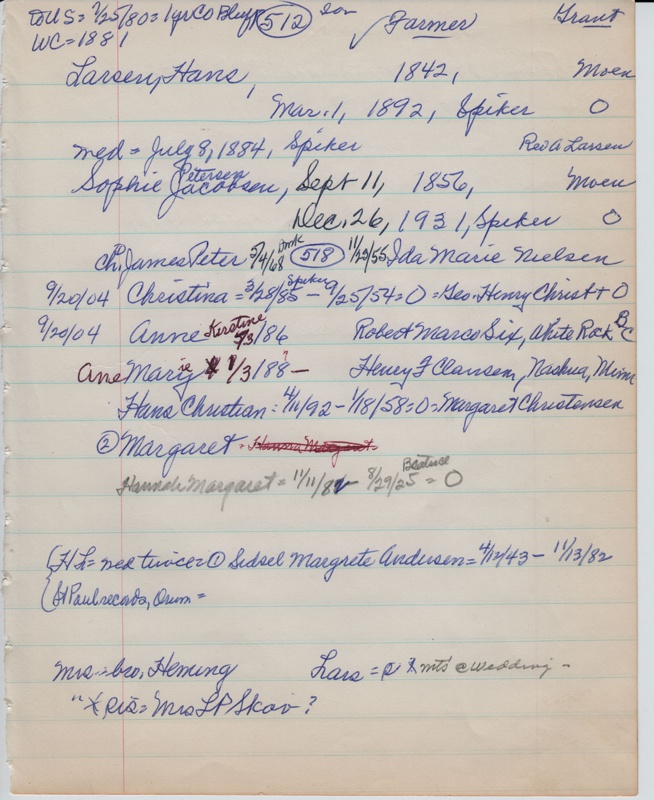 to U S = 7/25/80 = 1 yr Co Bluffs (512) Son ✓ Farmer Grant
WC = 1881
Larsen, Hans, 1842, Moen
Mar. 1, 1892, Spiker O
med = July 8, 1884, Spiker Rev A Larsen
Petersen
Sophie Jacobsen, Sept 11, 1856, Moen
Dec. 26, 1931, Spiker O
Ch. James Peter 5/4/68 (518) 11/29/55 Ida Marie Nielsen
9/20/04 Christina = 3/28/85 Spiker - 9/25/54 = O = Geo. Henry Christ + O
9/20/04 Anne Kerstine 5/3/86 Robert Marco Six, White Rock B C
Ane Marie 1/3/88 ? - Henry F Clausen, Nashua, Minn
Hans Christian = 4/11/92 - 1/18/58 = O = Margaret Christensen
② Margaret = Hanna Margaret
Hannah Margaret = 11/11/82 - 8/29/25 Beatrice = O
(H L = med twice = ① Sidsel Margrete Andersen = 4/12/43 - 11/13/82
(St Paul records, Orum =
Mrs = bro. Heming Lars = mts @ wedding -
" sis = Mrs L P Skov ?